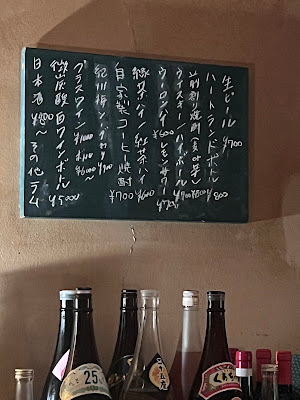 生ビール ¥700
ハートランドボトル ¥800
前割り焼酎(麦or芋) ¥800
ウィスキー/ハイボール ¥700
ウーロンハイ ¥600 レモンサワー ¥700
緑茶ハイ 紅茶ハイ ¥600
自家製コーヒー焼酎 ¥700
グラスワイン ¥1000 ボトル ¥6000〜
微炭酸白ワインボトル ¥5000
日本酒 ¥800〜 その他ラム
25